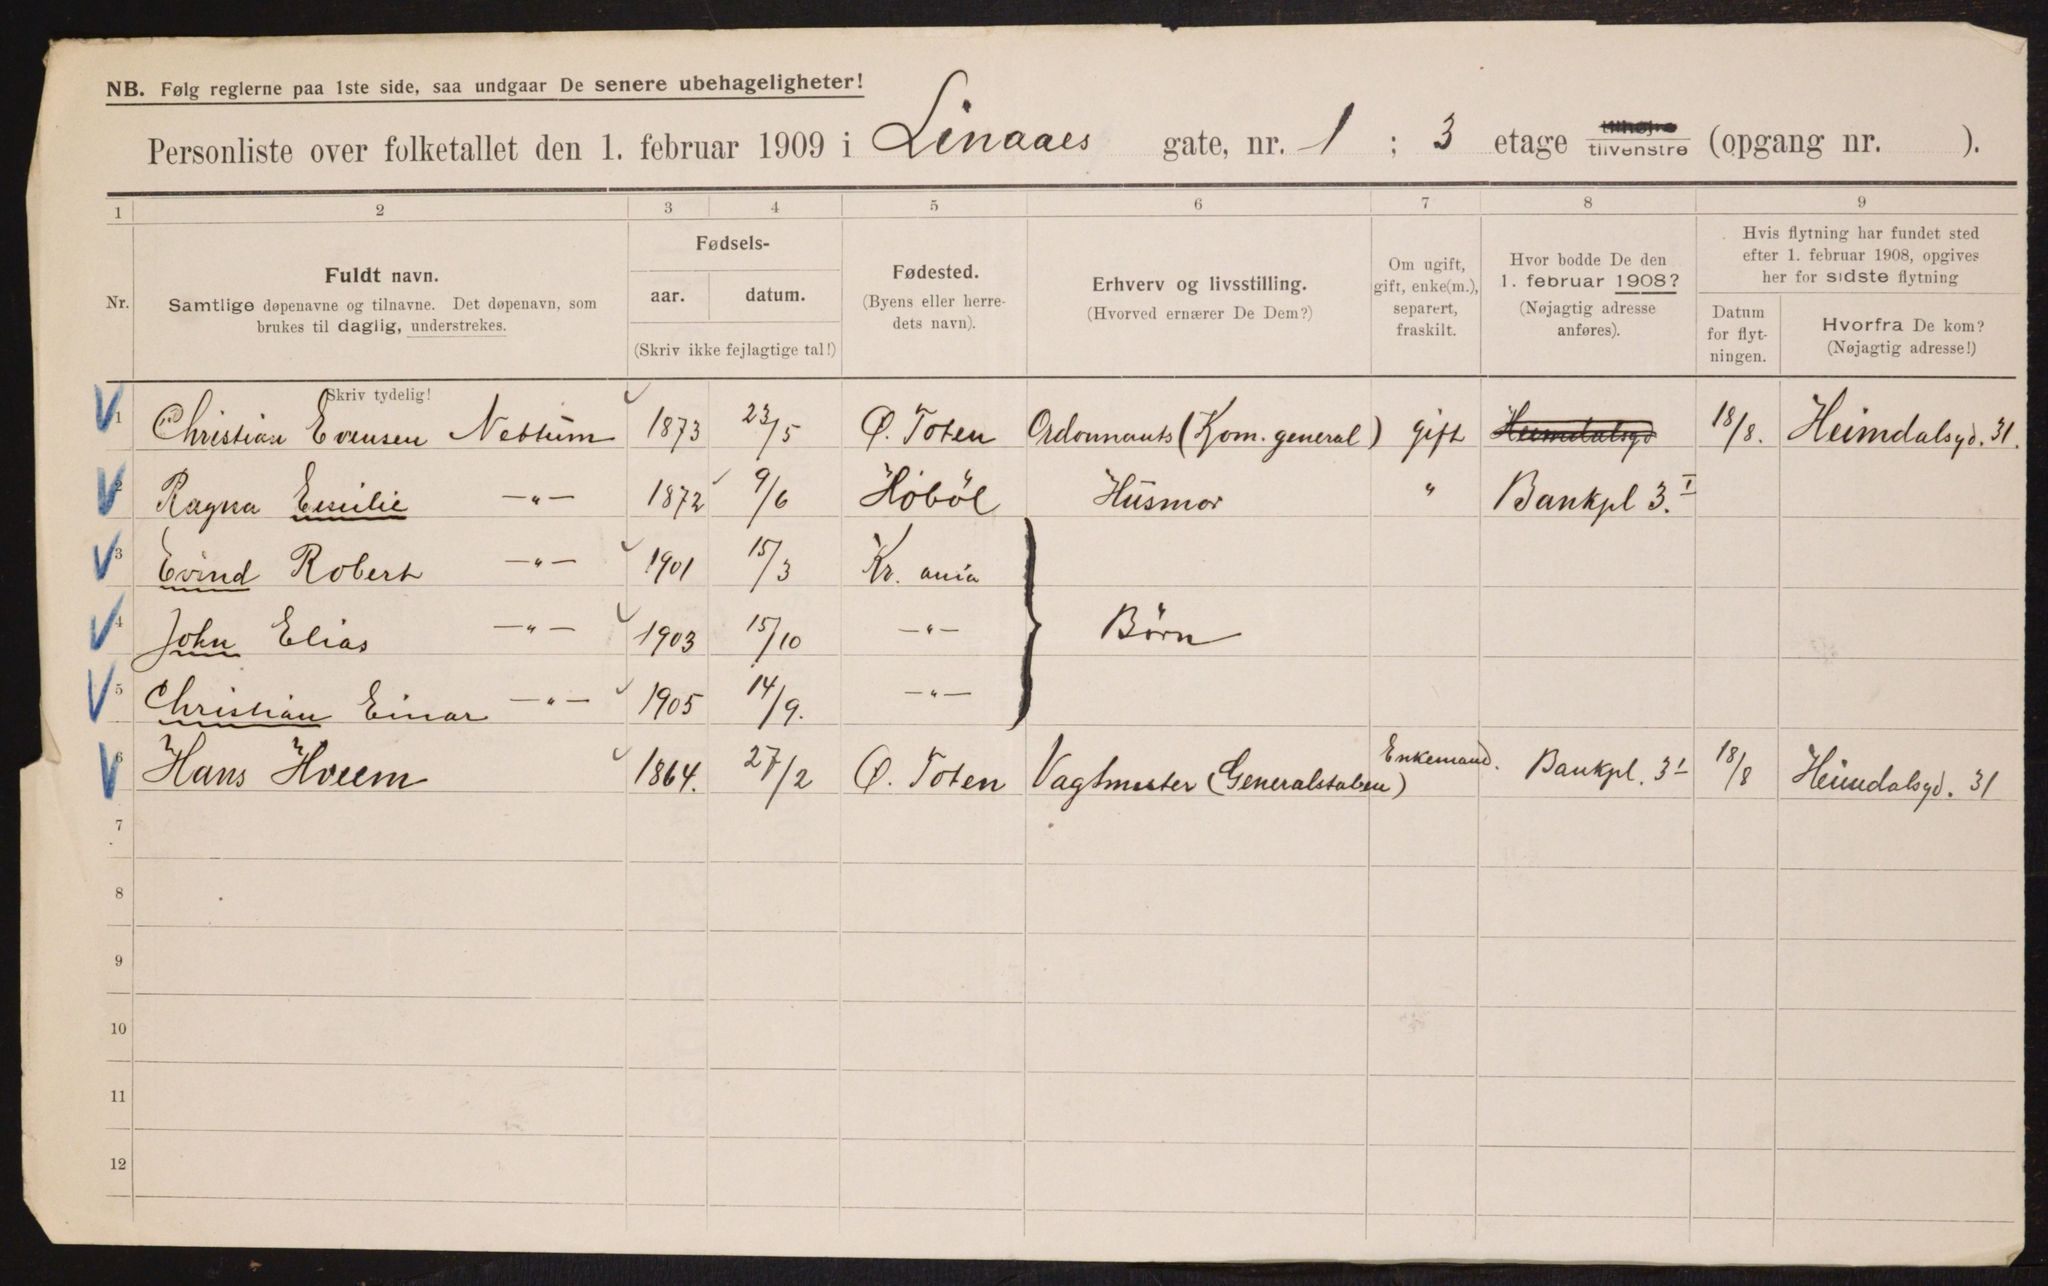 NB. Følg reglerne paa 1ste side, saa undgaar De senere ubehageligheter!
Personliste over folketallet den 1. februar 1909 i Linaaes gate, nr. 1 ; 3 etage tilhøjre tilvenstre (opgang nr. ).
1 2 3 4 5 6 7 8 9
Nr.
Fuldt navn.
Samtlige døpenavne og tilnavne. Det døpenavn, som
brukes til daglig, understrekes.
Fødsels-
aar. datum.
(Skriv ikke fejlagtige tal!)
Fødested.
(Byens eller herre-
dets navn).
Erhverv og livsstilling.
(Hvorved ernærer De Dem?)
Om ugift,
gift, enke(m.),
separert,
fraskilt.
Hvor bodde De den
1. februar 1908?
(Nøjagtig adresse
anføres).
Hvis flytning har fundet sted
efter 1. februar 1908, opgives
her for sidste flytning
Datum
for flyt-
ningen.
Hvorfra De kom?
(Nøjagtig adresse!)
Skriv tydelig!
1 Christian Evensen Nettum 1873 23/5 Ø. Toten Ordonnants (Kom. general) gift Heimdalsgd 18/8. Heimdalsgd. 31.
2 Ragna Emilie —"— 1872 9/6 Høbøl Husmor " Bankpl 3.I
3 Evind Robert —"— 1901 15/3 Kr. ania
4 John Elias —"— 1903 15/10 —"— Børn
5 Christian Einar —"— 1905 14/9. —"—
6 Hans Hveem 1864. 27/2 Ø. Toten Vagtmester (Generalstaben) Enkemand. Bankpl. 3I 18/8 Heimdalsgd. 31
7
8
9
10
11
12